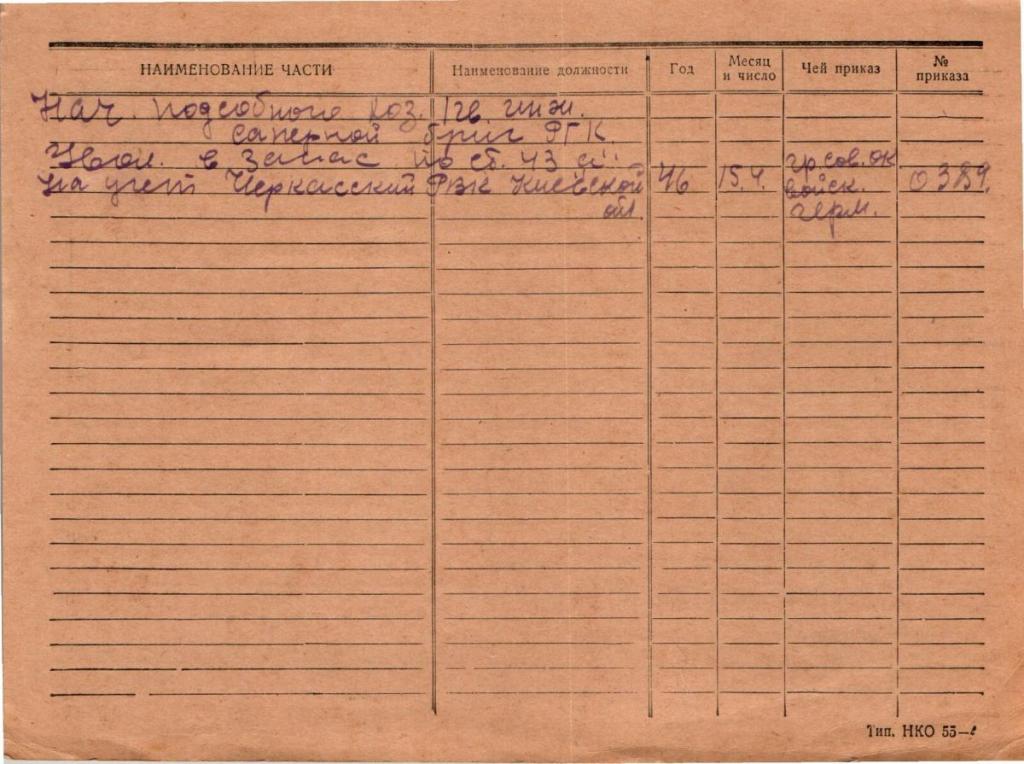 НАИМЕНОВАНИЕ ЧАСТИ
Наименование должности
Год
Месяц
и число
Чей приказ
№
приказа
Нач. подсобного хоз. 1 гв. инж.
саперной бриг РГК
Увол. в запас по ст. 43 "а"
гр. сов. ок
на учет Черкасский РВК Киевской 46 15.4. войск. 0389.
обл. герм.
Тип. НКО 55—